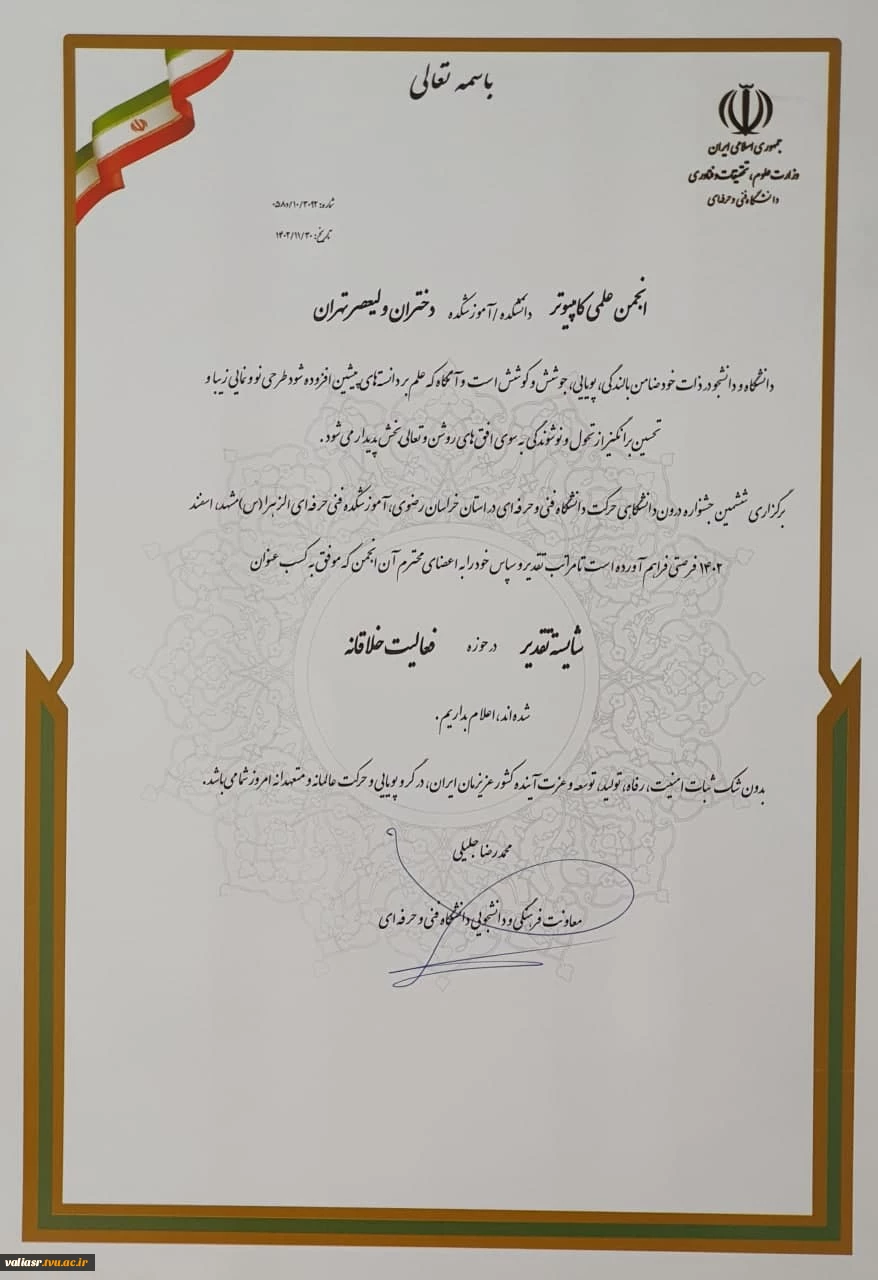 باسمه تعالی
جمهوری اسلامی ایران
وزارت علوم، تحقیقات و فناوری
دانشگاه فنی و حرفه‌ای
شماره: ۰۵۸۵/۱۰/۳۰۹۲
تاریخ: ۱۴۰۲/۱۱/۳۰
انجمن علمی کامپیوتر دانشکده / آموزشکده دختران ولیعصر تهران
دانشگاه و دانشجو در ذات خود ضامن بالندگی، پویایی، جوشش و کوشش است و آنگاه که علم بر دانسته‌های پیشین افزوده شود طرحی نو و نمایی زیبا و
تحسین برانگیز از تحول و نوشوندگی به سوی افق‌های روشن و تعالی بخش پدیدار می‌شود.
برگزاری ششمین جشنواره درون دانشگاهی حرکت دانشگاه فنی و حرفه‌ای در استان خراسان رضوی، آموزشکده فنی حرفه‌ای الزهرا (س) مشهد، اسفند
۱۴۰۲ فرصتی فراهم آورده است تا مراتب تقدیر و سپاس خود را به اعضای محترم آن انجمن که موفق به کسب عنوان
شایسته تقدیر در حوزه فعالیت خلاقانه
شده‌اند، اعلام بداریم.
بدون شک ثبات امنیت، رفاه، تولید، توسعه و عزت آینده کشور عزیزمان ایران، در گرو پویایی و حرکت عالمانه و متعهدانه امروز شما می‌باشد.
محمدرضا جلیلی
معاونت فرهنگی و دانشجویی دانشگاه فنی و حرفه‌ای
valiasr.tvu.ac.ir